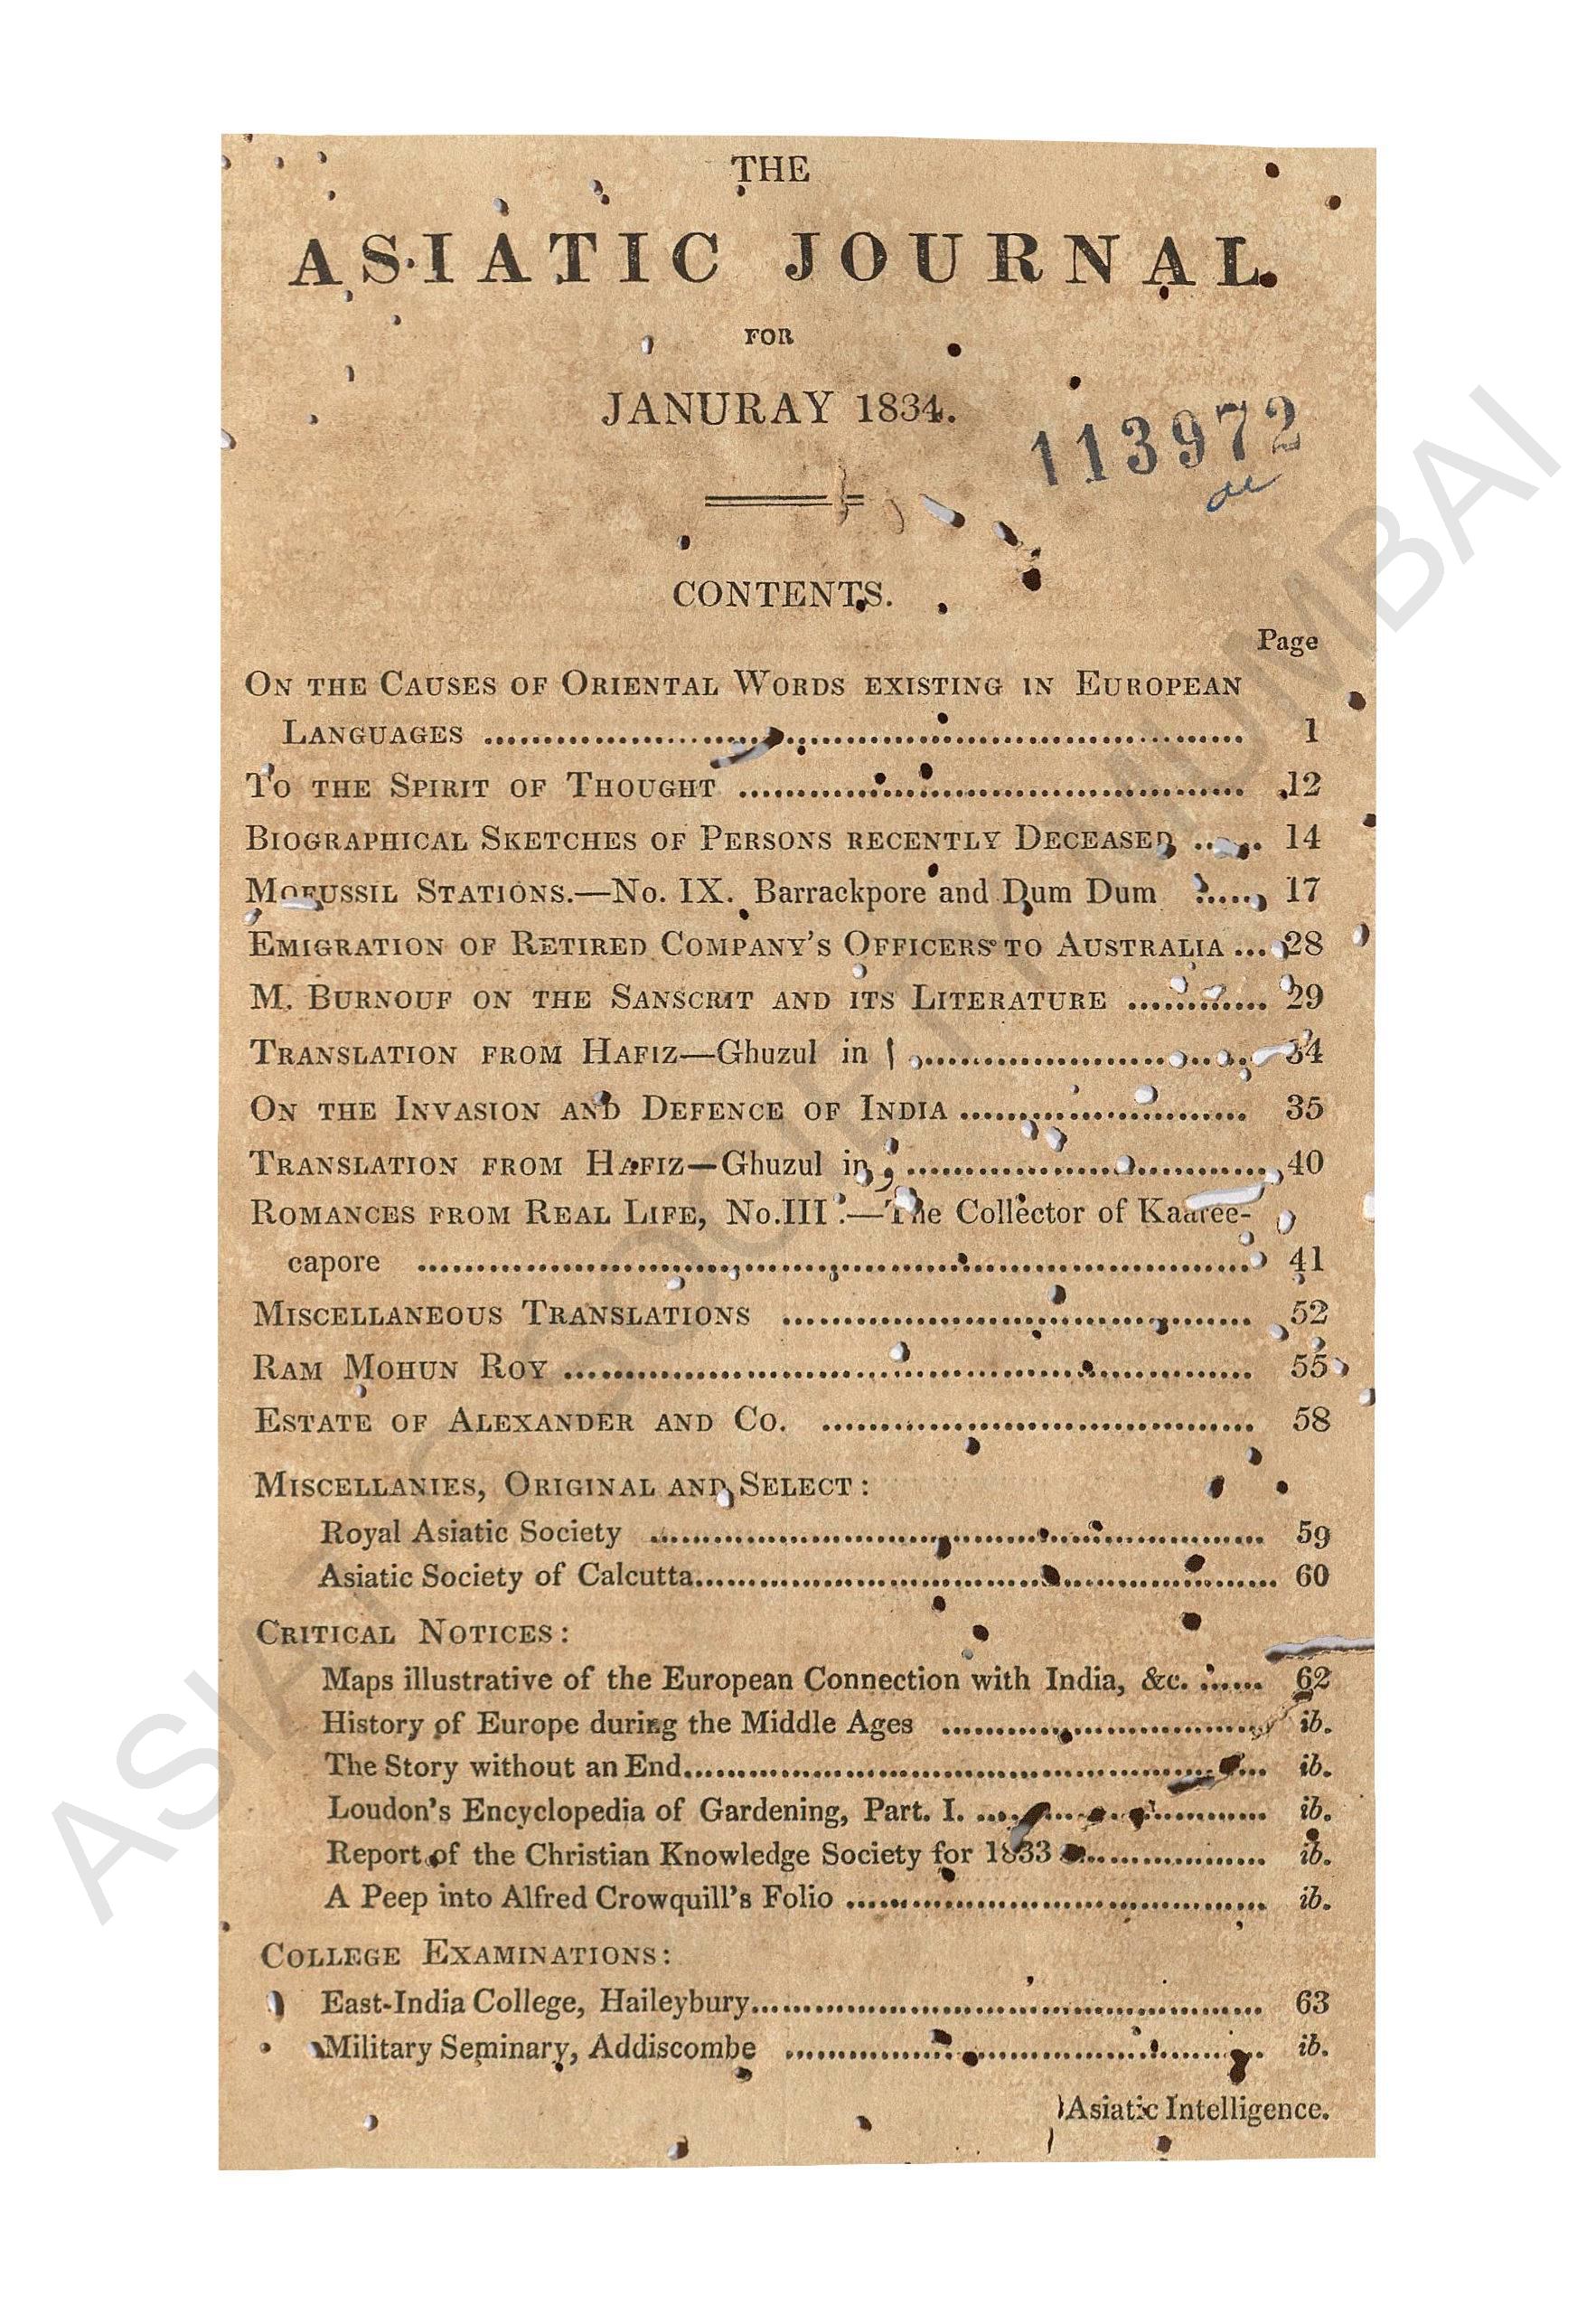 THE
ASIATIC JOURNAL
FOR
JANURAY 1834.
113972
CONTENTS.
Page
ON THE CAUSES OF ORIENTAL WORDS EXISTING IN EUROPEAN
LANGUAGES ........ 1
TO THE SPIRIT OF THOUGHT ........ 12
BIOGRAPHICAL SKETCHES OF PERSONS RECENTLY DECEASED ...... 14
MOFUSSIL STATIONS.—No. IX. Barrackpore and Dum Dum ...... 17
EMIGRATION OF RETIRED COMPANY'S OFFICERS TO AUSTRALIA ... 28
M. BURNOUF ON THE SANSCRIT AND ITS LITERATURE ........ 29
TRANSLATION FROM HAFIZ—Ghuzul in ا ........ 34
ON THE INVASION AND DEFENCE OF INDIA ........ 35
TRANSLATION FROM HAFIZ—Ghuzul in ........ 40
ROMANCES FROM REAL LIFE, No.III.—The Collector of Kaaree-
capore ........ 41
MISCELLANEOUS TRANSLATIONS ........ 52
RAM MOHUN ROY ........ 55
ESTATE OF ALEXANDER AND CO. ........ 58
MISCELLANIES, ORIGINAL AND SELECT:
Royal Asiatic Society ........ 59
Asiatic Society of Calcutta ........ 60
CRITICAL NOTICES:
Maps illustrative of the European Connection with India, &c. ...... 62
History of Europe during the Middle Ages ........ ib.
The Story without an End ........ ib.
Loudon's Encyclopedia of Gardening, Part. I. ........ ib.
Report of the Christian Knowledge Society for 1833 ........ ib.
A Peep into Alfred Crowquill's Folio ........ ib.
COLLEGE EXAMINATIONS:
East-India College, Haileybury ........ 63
Military Seminary, Addiscombe ........ ib.
Asiatic Intelligence.
ASIATIC SOCIETY MUMBAI